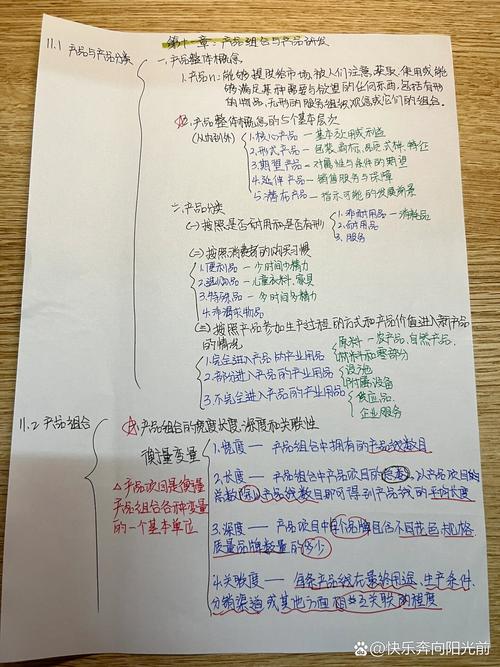 第十一章：产品组合与产品研发
11.1 产品与产品分类
一、产品整体概念
1.产品n：能够提供给市场，被人们注意、获取、使用或能
够满足某种需要与欲望的任何东西，包括有形
的物品、无形的服务组织观念或它们的组合。
2.产品整体概念的5个基本层次
(从内到外)
1.核心产品 — 基本效用或利益
2.形式产品 — 包装、商标、品质、式样、特征
3.期望产品 — 对属性与条件的期望
4.延伸产品 — 销售服务与保障
5.潜在产品 — 指示可能的发展前景
二、产品分类
(一)按照是否耐用和是否有形
1.非耐用品 — 消耗品
2.耐用品
3.服务
(二)按照消费者的购买习惯
1.便利品 — 少时间少精力
2.选购品 — 儿童衣料、家具
3.特殊品 — 多时间多精力
4.非渴求物品
(三)按照产品参加生产过程的方式和产品价值进入新产品
的情况
1.完全进入产品的产业用品
原料 — 农产品、自然产品.
材料和零部分
2.部分进入产品的产业用品
设施
附属设备
3.不完全进入产品的产业用品
供应品.
企业服务
11.2 产品组合
产品组合的宽度、长度、深度和关联性
衡量变量
△产品项目是衡量
产品组合各种变量
的一个基本单位
1.宽度 — 产品组合中拥有的产品线数目
2.长度 — 产品组合中产品项目的总数，以产品项目
总数除以产品线数目即可得到产品线的平均长度
3.深度 — 产品项目中每个品牌所含不同花色、规格、
质量品牌数量的多少
4.关联度 — 每条产品线在最终用途、生产条件
分销渠道或其他方面相互关联的程度
快乐奔向阳光前